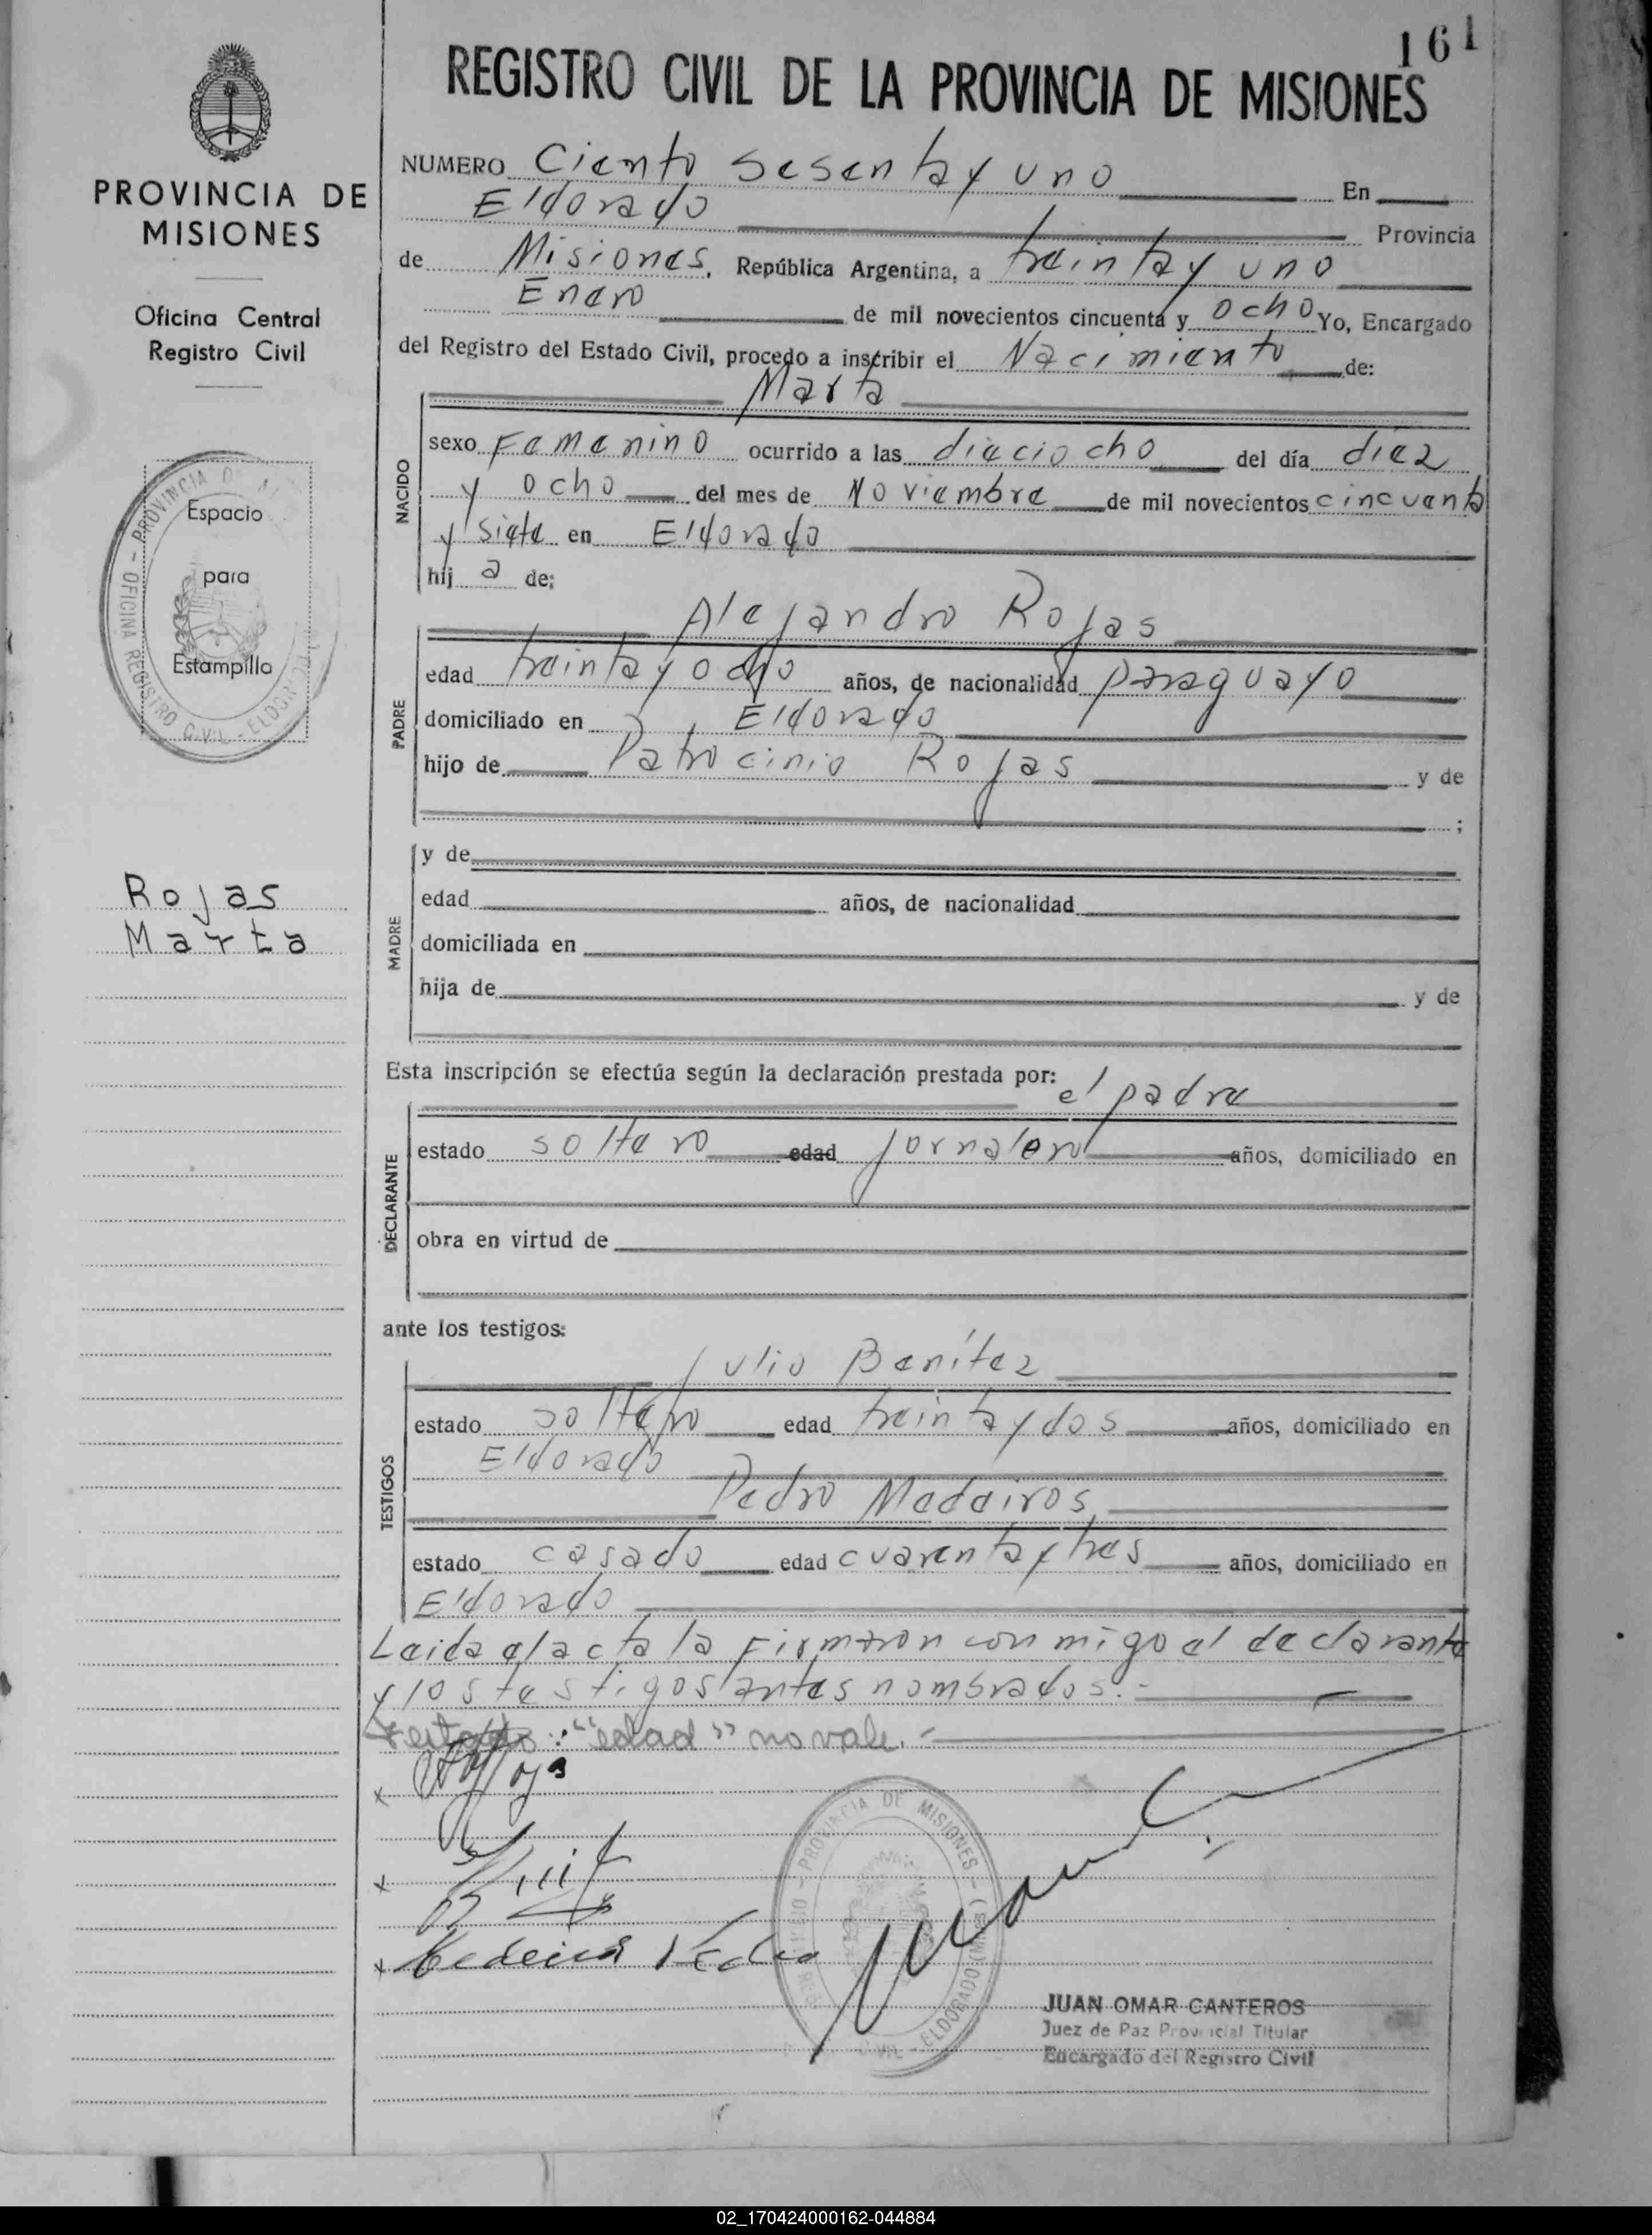 161
REGISTRO CIVIL DE LA PROVINCIA DE MISIONES
PROVINCIA DE
MISIONES
Oficina Central
Registro Civil
Espacio
para
Estampilla
Rojas
Marta
NUMERO Ciento sesenta y uno En
Eldorado Provincia
de Misiones, República Argentina, a treinta y uno
Enero de mil novecientos cincuenta y ocho Yo, Encargado
del Registro del Estado Civil, procedo a inscribir el Nacimiento de:
Marta
NACIDO
sexo Femenino ocurrido a las dieciocho del día diez
y ocho del mes de Noviembre de mil novecientos cincuenta
y siete en Eldorado
hij a de:
PADRE
Alejandro Rojas
edad treinta y ocho años, de nacionalidad paraguayo
domiciliado en Eldorado
hijo de Patrocinio Rojas y de
;
MADRE
y de
edad años, de nacionalidad
domiciliada en
hija de y de
Esta inscripción se efectúa según la declaración prestada por:
el padre
DECLARANTE
estado soltero edad jornalero años, domiciliado en
obra en virtud de
ante los testigos:
TESTIGOS
Julio Benítez
estado soltero edad treinta y dos años, domiciliado en
Eldorado
Pedro Medeiros
estado casado edad cuarenta y tres años, domiciliado en
Eldorado
Leida el acta la Firmaron conmigo el declarante
y los testigos antes nombrados.-
Testado: "edad" no vale.-
x
x
x Medeiros Pedro
PROVINCIA DE MISIONES - ELDORADO (Mnes)
JUAN OMAR CANTEROS
Juez de Paz Provincial Titular
Encargado del Registro Civil
02_170424000162-044884